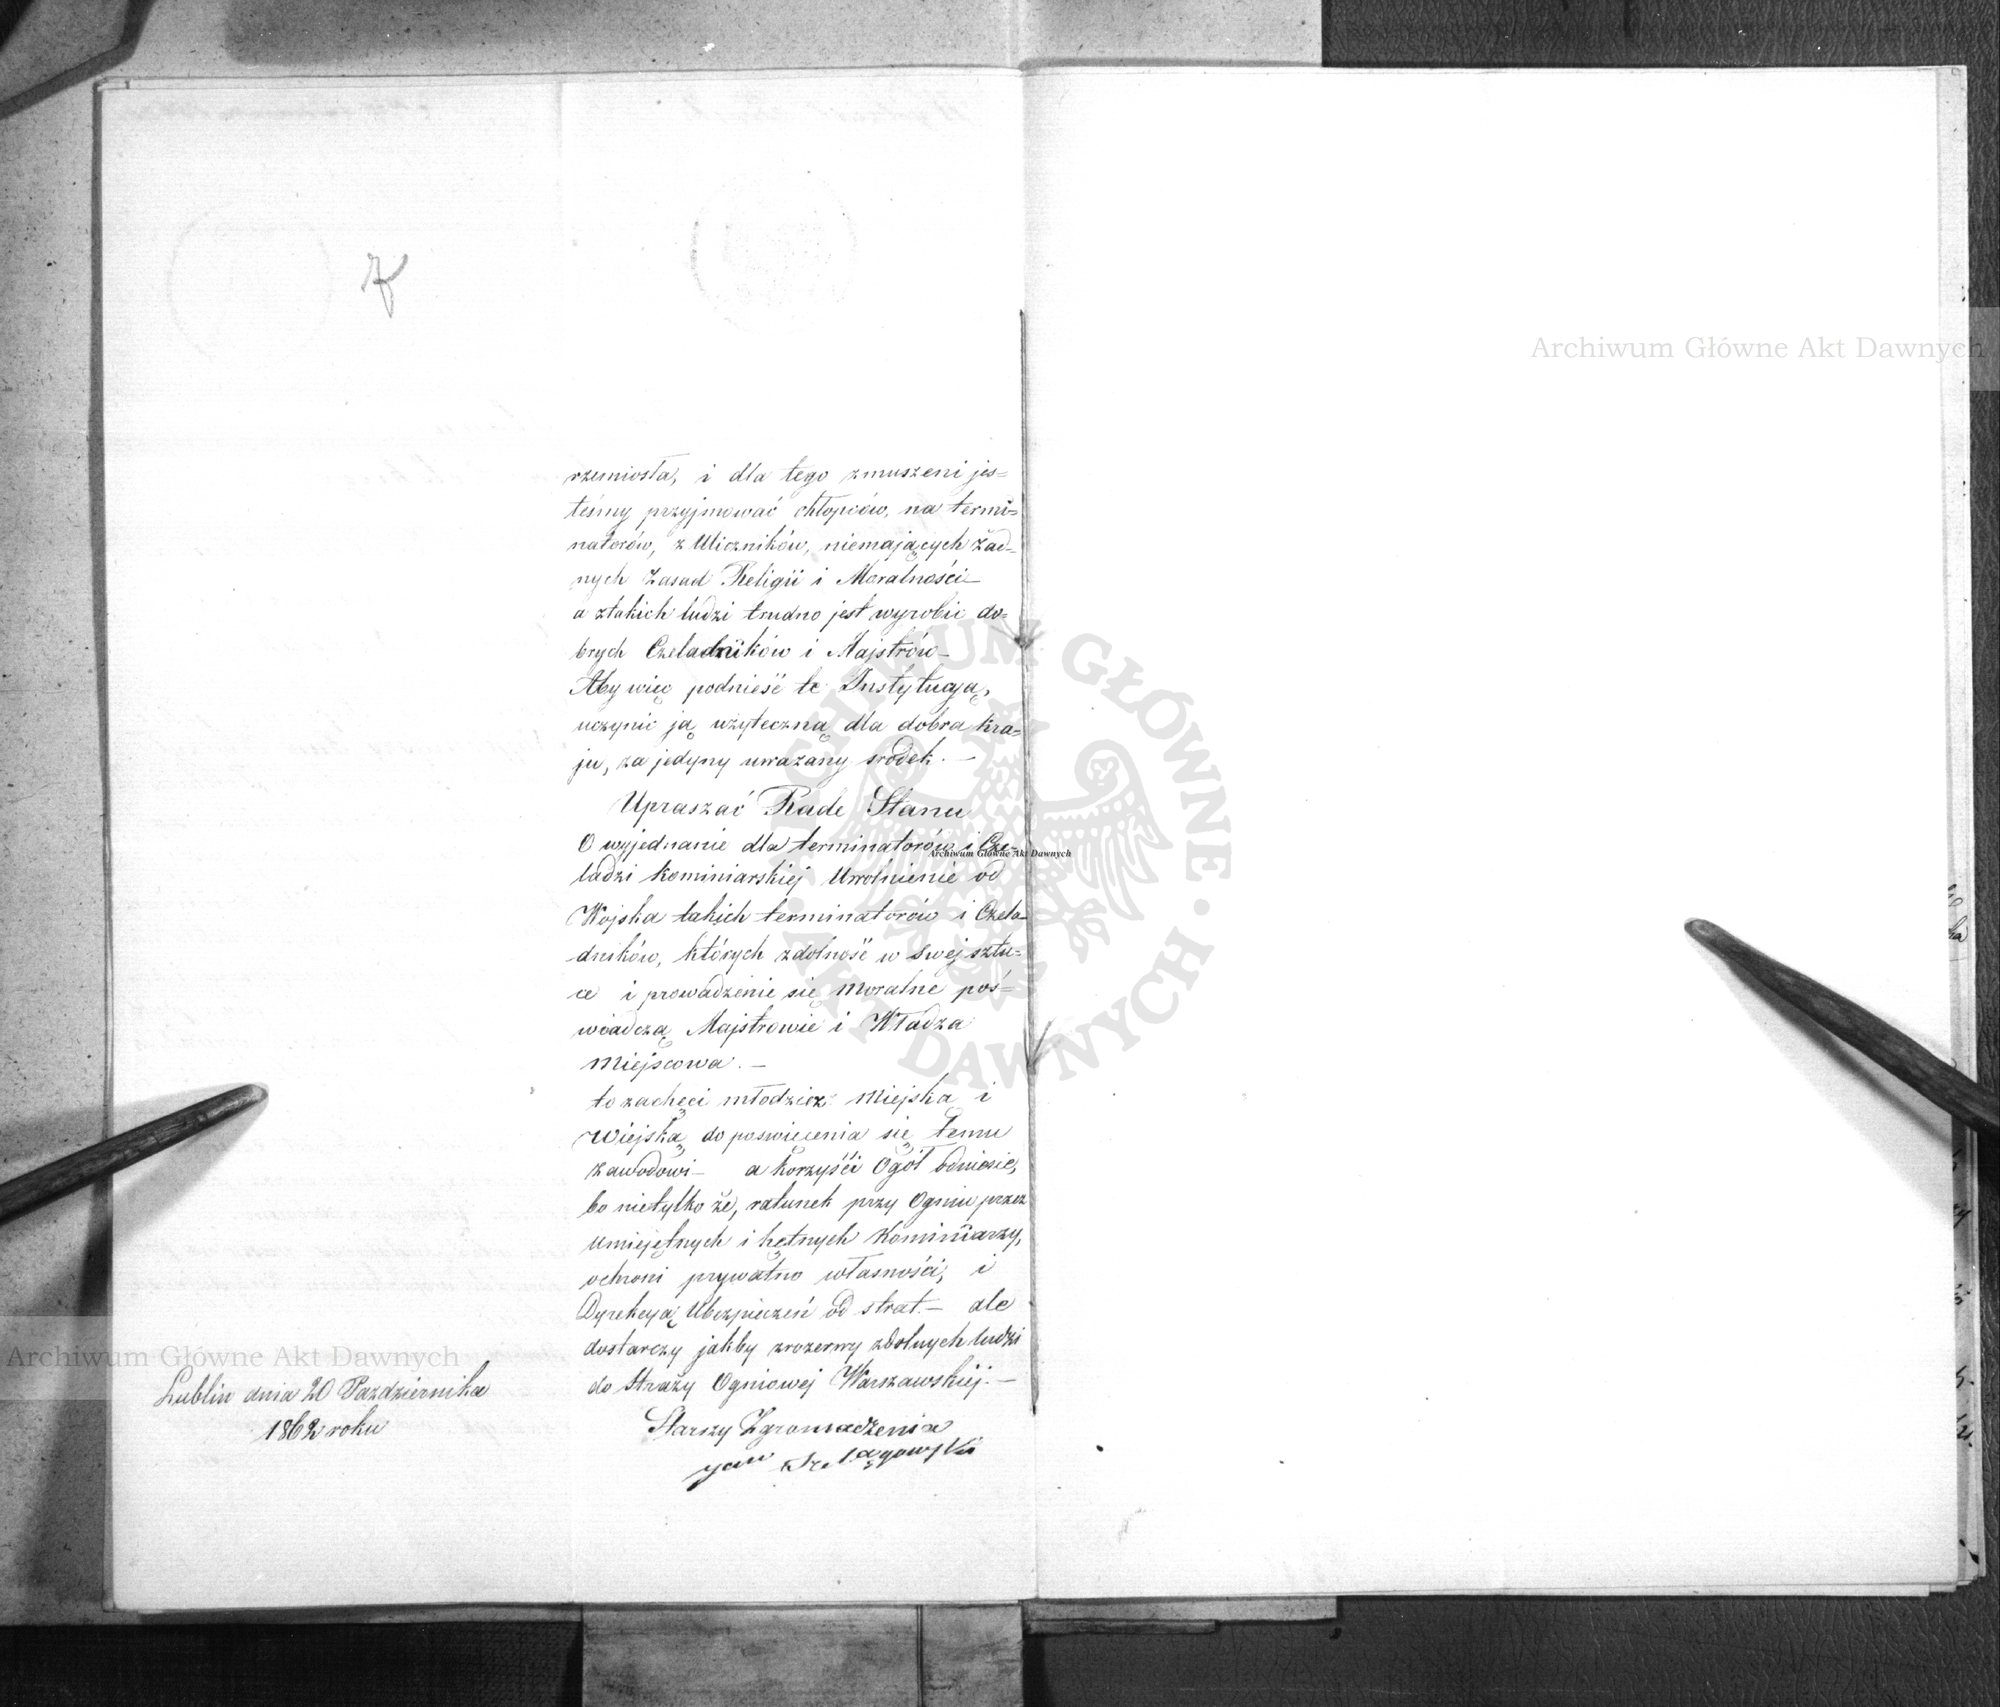 rzemiosła, i dla tego zmuszeni jes=
teśmy przyjmować chłopców, na termi=
natorów, z Uliczników, niemających żad=
nych Zasad Religii i Moralności—
a ztakich ludzi trudno jest wyrobić do=
brych Czeladników i Majstrów—
Aby więc podnieść te Instytucyą,
uczynić ją użyteczną dla dobra kra=
ju, za jedyny uważany srodek. —
Upraszać Rade Stanu
O wyjednanie dla terminatorów i Cze-
ladzi Kominiarskiej Uwolnienie od
Wojska takich terminatorów i Czela-
dników, których zdolność w swej sztu=
ce i prowadzenie się Moralne poś=
wiadczą Majstrowie i Władza
Miejscowa. —
to zachęci młodzież Miejską i
Wiejską do poswięcenia się temu
zawodowi— a korzyści Ogół odniesie,
bo nietylko że, ratunek przy Ogniu przez
Umiejętnych i hętnych Kominiarzy,
ochroni prywatno własności, i
Dyrekcyą Ubezpieczeń od strat.— ale
dostarczy jakby zrezerwy zdolnych ludzi
do Straży Ogniowej Warszawskiej. —
Starszy Zgromadzenia
Jan Szelągowski
Lublin dnia 20 Pazdziernika
1862 roku
Archiwum Główne Akt Dawnych
Archiwum Główne Akt Dawnych
Archiwum Główne Akt Dawnych
ARCHIWUM GŁÓWNE · AKT DAWNYCH ·